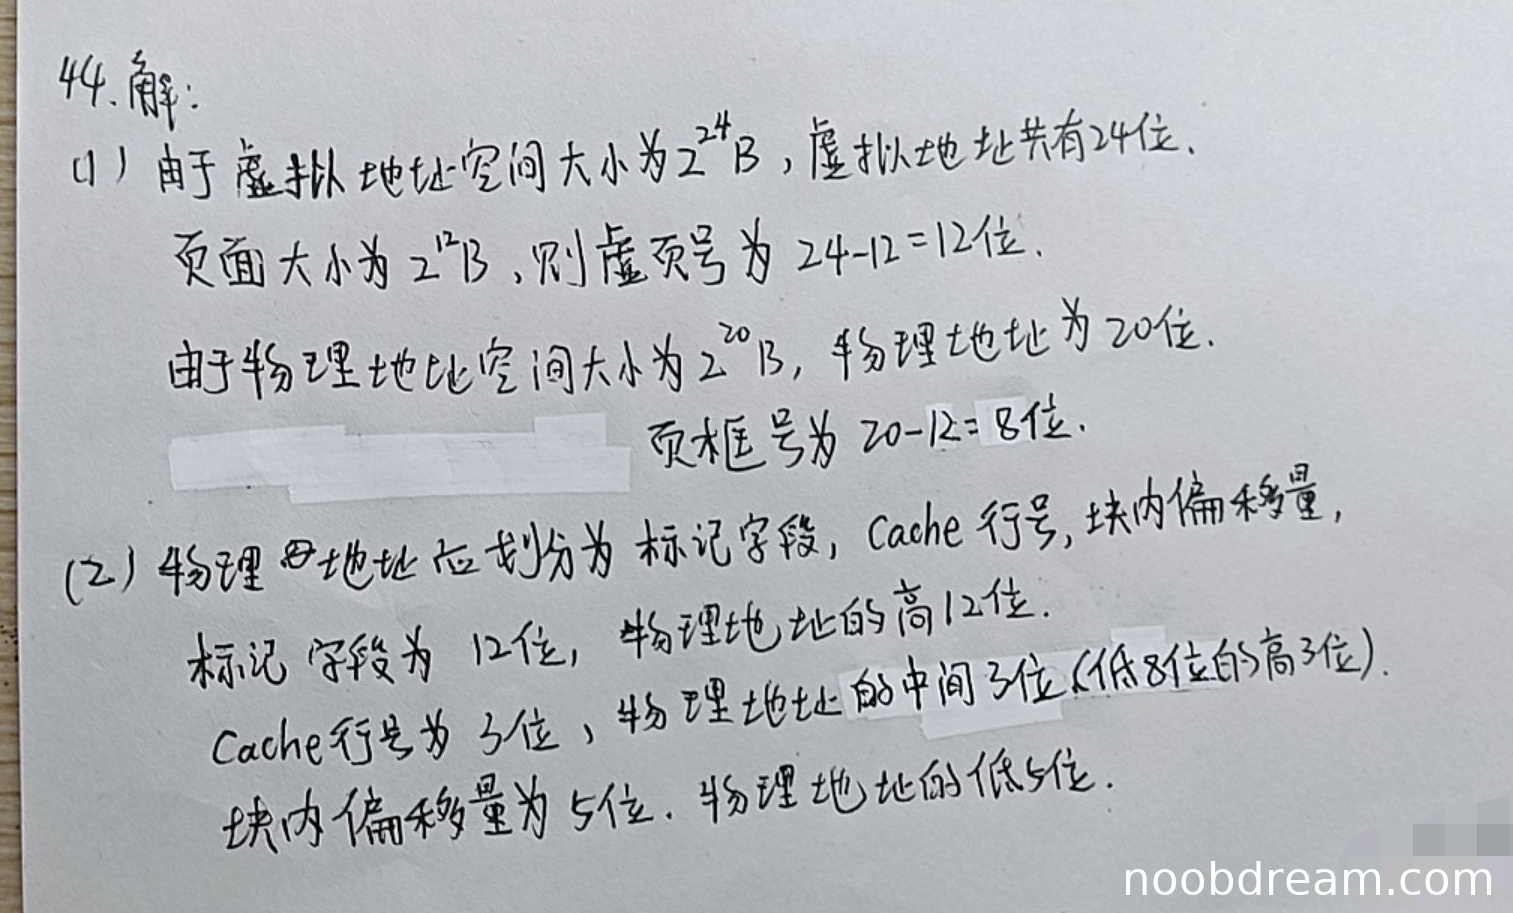 44.解:
(1) 由于虚拟地址空间大小为2²⁴B,虚拟地址共有24位.
页面大小为2¹²B,则虚页号为24-12=12位.
由于物理地址空间大小为2²⁰B,物理地址为20位.
页框号为20-12=8位.
(2) 物理地址应划分为标记字段,Cache行号,块内偏移量,
标记字段为12位,物理地址的高12位.
Cache行号为3位,物理地址的中间3位(低8位的高3位).
块内偏移量为5位.物理地址的低5位.
noobdream.com